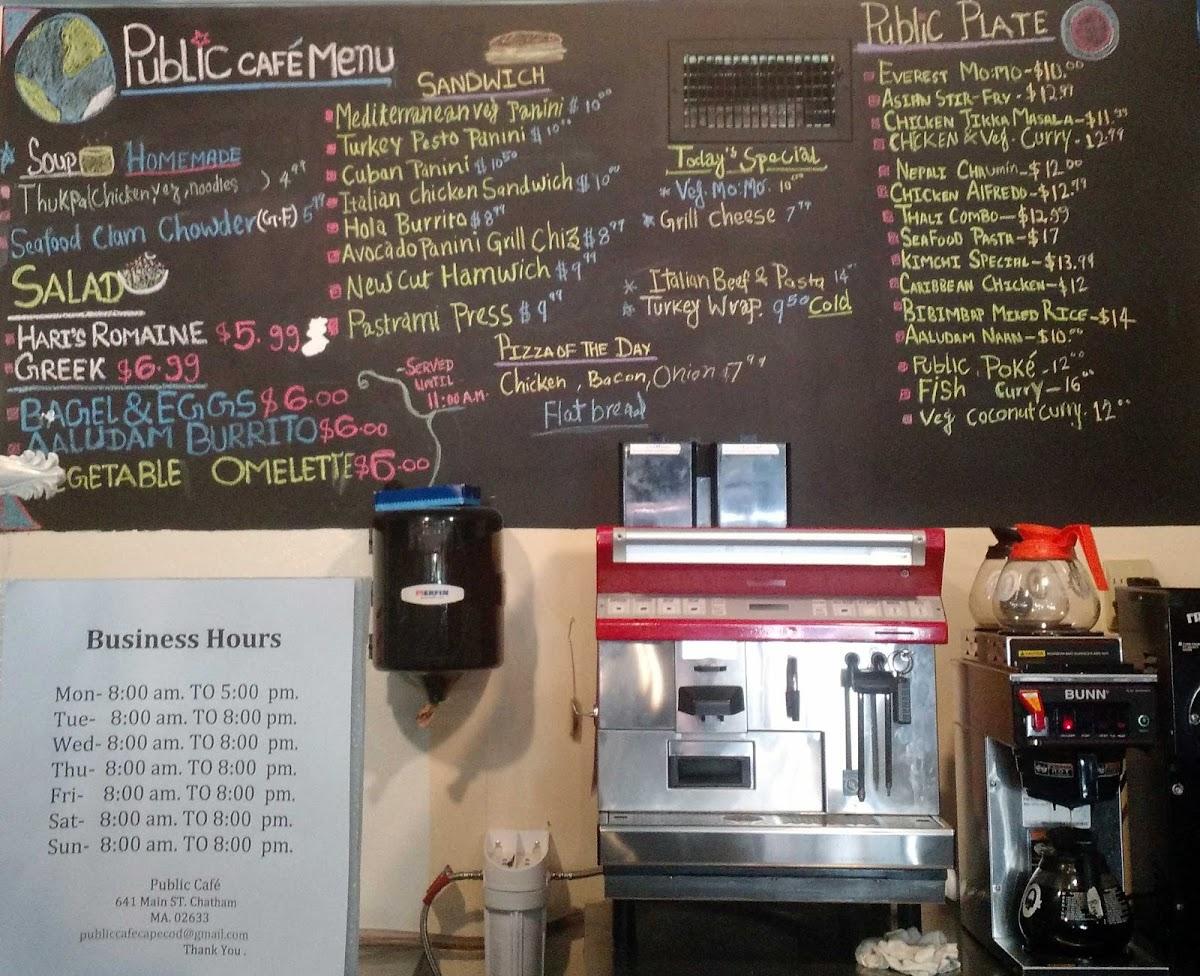 Public CAFÉ MENU
Soup HOMEMADE
Thukpa (Chicken, veg, noodles) 4.99
Seafood Clam Chowder (G.F) 5.99
SALAD
HARI'S ROMAINE $5.99
GREEK $6.99
BAGEL & EGGS $6.00
AALUDAM BURRITO $6.00
EGETABLE OMELETTE $6.00
-SERVED
UNTIL
11:00 A.M.
SANDWICH
Mediterranean veg Panini $10.00
Turkey Pesto Panini $10.00
Cuban Panini $10.50
Italian Chicken Sandwich $10.00
Hola Burrito $8.99
Avocado Panini Grill Chiz $8.99
New Cut Hamwich $9.99
Pastrami Press $9.99
PIZZA OF THE DAY
Chicken, Bacon, Onion $7.99
Flat bread
Today's Special
Veg. Mo:Mo. 10.00
Grill Cheese 7.99
Italian Beef & Pasta 14
Turkey Wrap. 9.50 Cold
PUBLIC PLATE
EVEREST MO:MO-$10.00
ASIAN STIR-FRY-$12.99
CHICKEN TIKKA MASALA-$11.99
CHICKEN & VEG. CURRY-12.99
NEPALI CHAUMIN-$12.00
CHICKEN ALFREDO-$12.99
THALI COMBO-$12.99
SEAFOOD PASTA-$17
KIMCHI SPECIAL-$13.99
CARIBBEAN CHICKEN-$12
BIBIMBAP MIXED RICE-$14
AALUDAM NAAN-$10.00
Public Poké-12.00
Fish Curry-16.00
Veg Coconut curry. 12.00
MERFIN
BUNN
Business Hours
Mon- 8:00 am. TO 5:00 pm.
Tue- 8:00 am. TO 8:00 pm.
Wed- 8:00 am. TO 8:00 pm.
Thu- 8:00 am. TO 8:00 pm.
Fri- 8:00 am. TO 8:00 pm.
Sat- 8:00 am. TO 8:00 pm.
Sun- 8:00 am. TO 8:00 pm.
Public Café
641 Main ST. Chatham
MA. 02633
publiccafecapecod@gmail.com
Thank You .